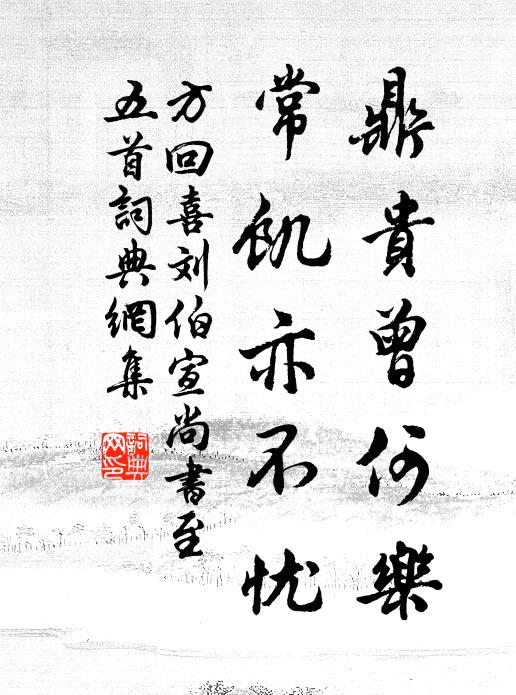 鼎貴曾何樂
常飢亦不忧
方回喜刘伯宣尚書至
五首詞典網集
詞典
网印